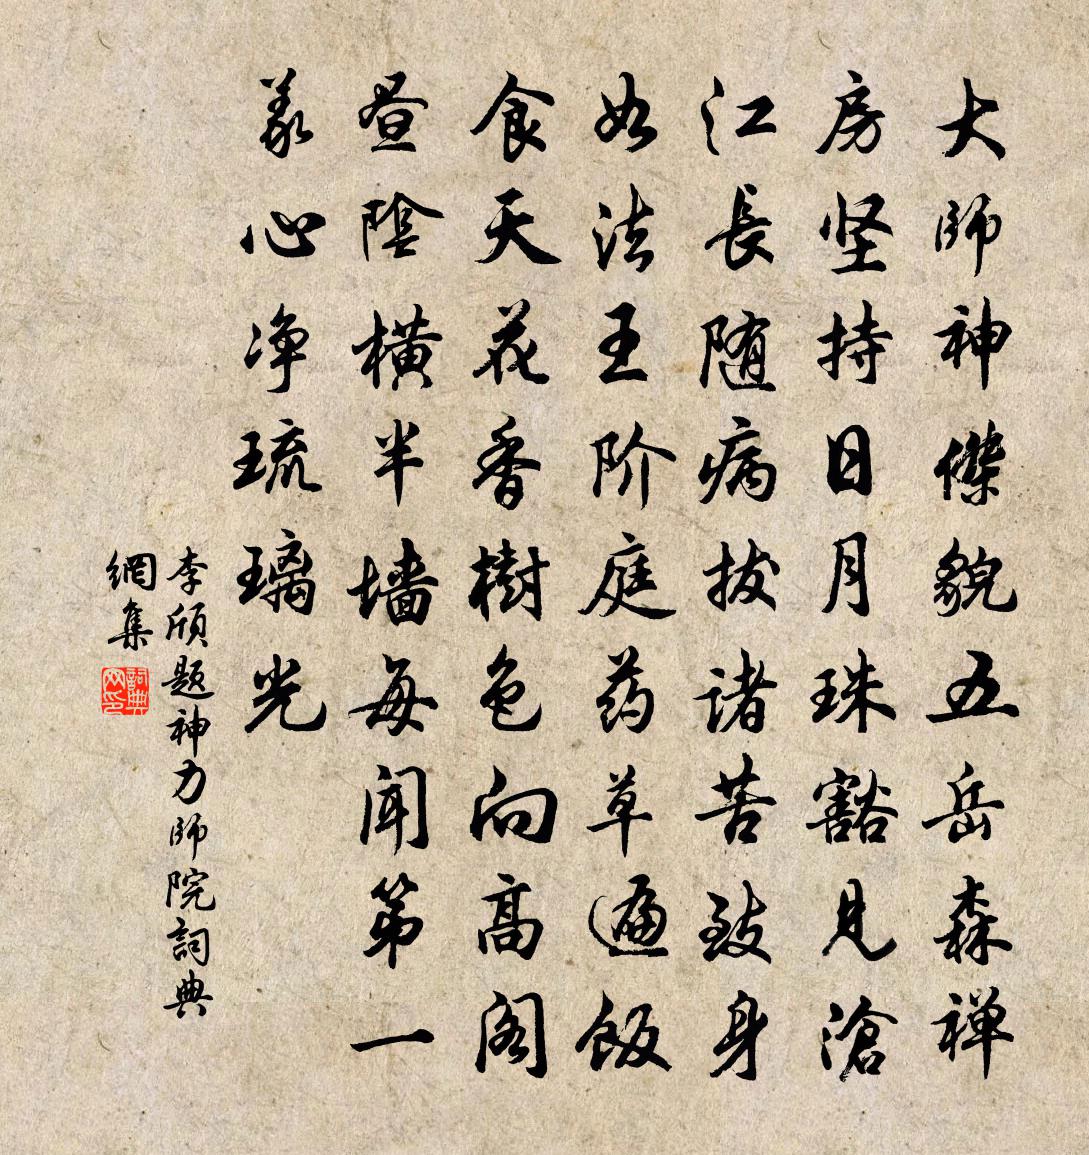 大師神傑貌五岳森禅
房坚持日月珠豁見滄
江長随病拔诸苦致身
如法王阶庭药草遍饭
食天花香樹色向高阁
昼陰横半墙每闻第一
義心净琉璃光
李颀题神力師院詞典
網集
詞典
网印